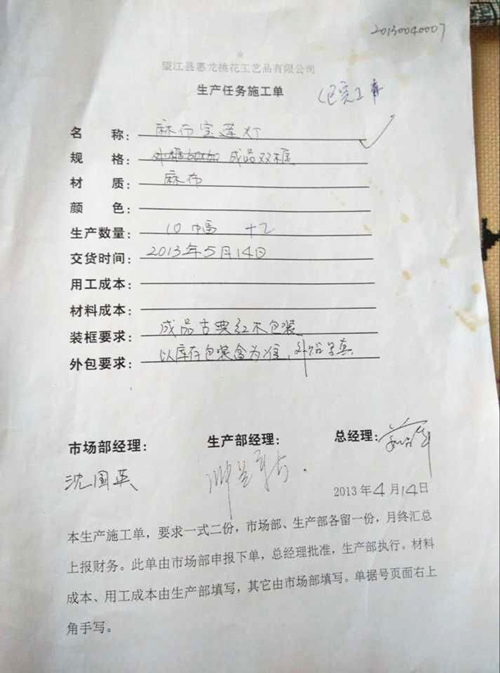 20130040007
望江县惠龙挑花工艺品有限公司
生产任务施工单
(已完工
名 称: 麻布宝莲灯
规 格: 成品双框
材 质: 麻布
颜 色:
生产数量: 10幅
交货时间: 2013年5月14日
用工成本:
材料成本:
装框要求: 成品古典红木包装
外包要求: 以库存包装盒为准,
市场部经理: 生产部经理: 总经理:
沈国英
2013年4月14日
本生产施工单,要求一式二份,市场部、生产部各留一份,月终汇总
上报财务。此单由市场部申报下单,总经理批准,生产部执行。材料
成本、用工成本由生产部填写,其它由市场部填写。单据号页面右上
角手写。